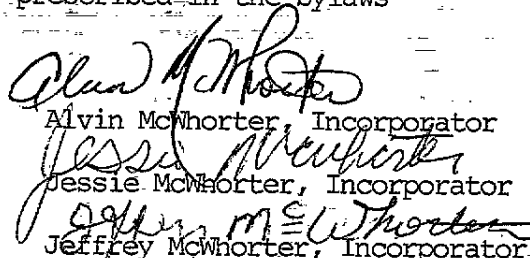 prescribed in the bylaws
Alvin McWhorter
Alvin McWhorter, Incorporator
Jessie McWhorter
Jessie McWhorter, Incorporator
Jeffrey McWhorter
Jeffrey McWhorter, Incorporator